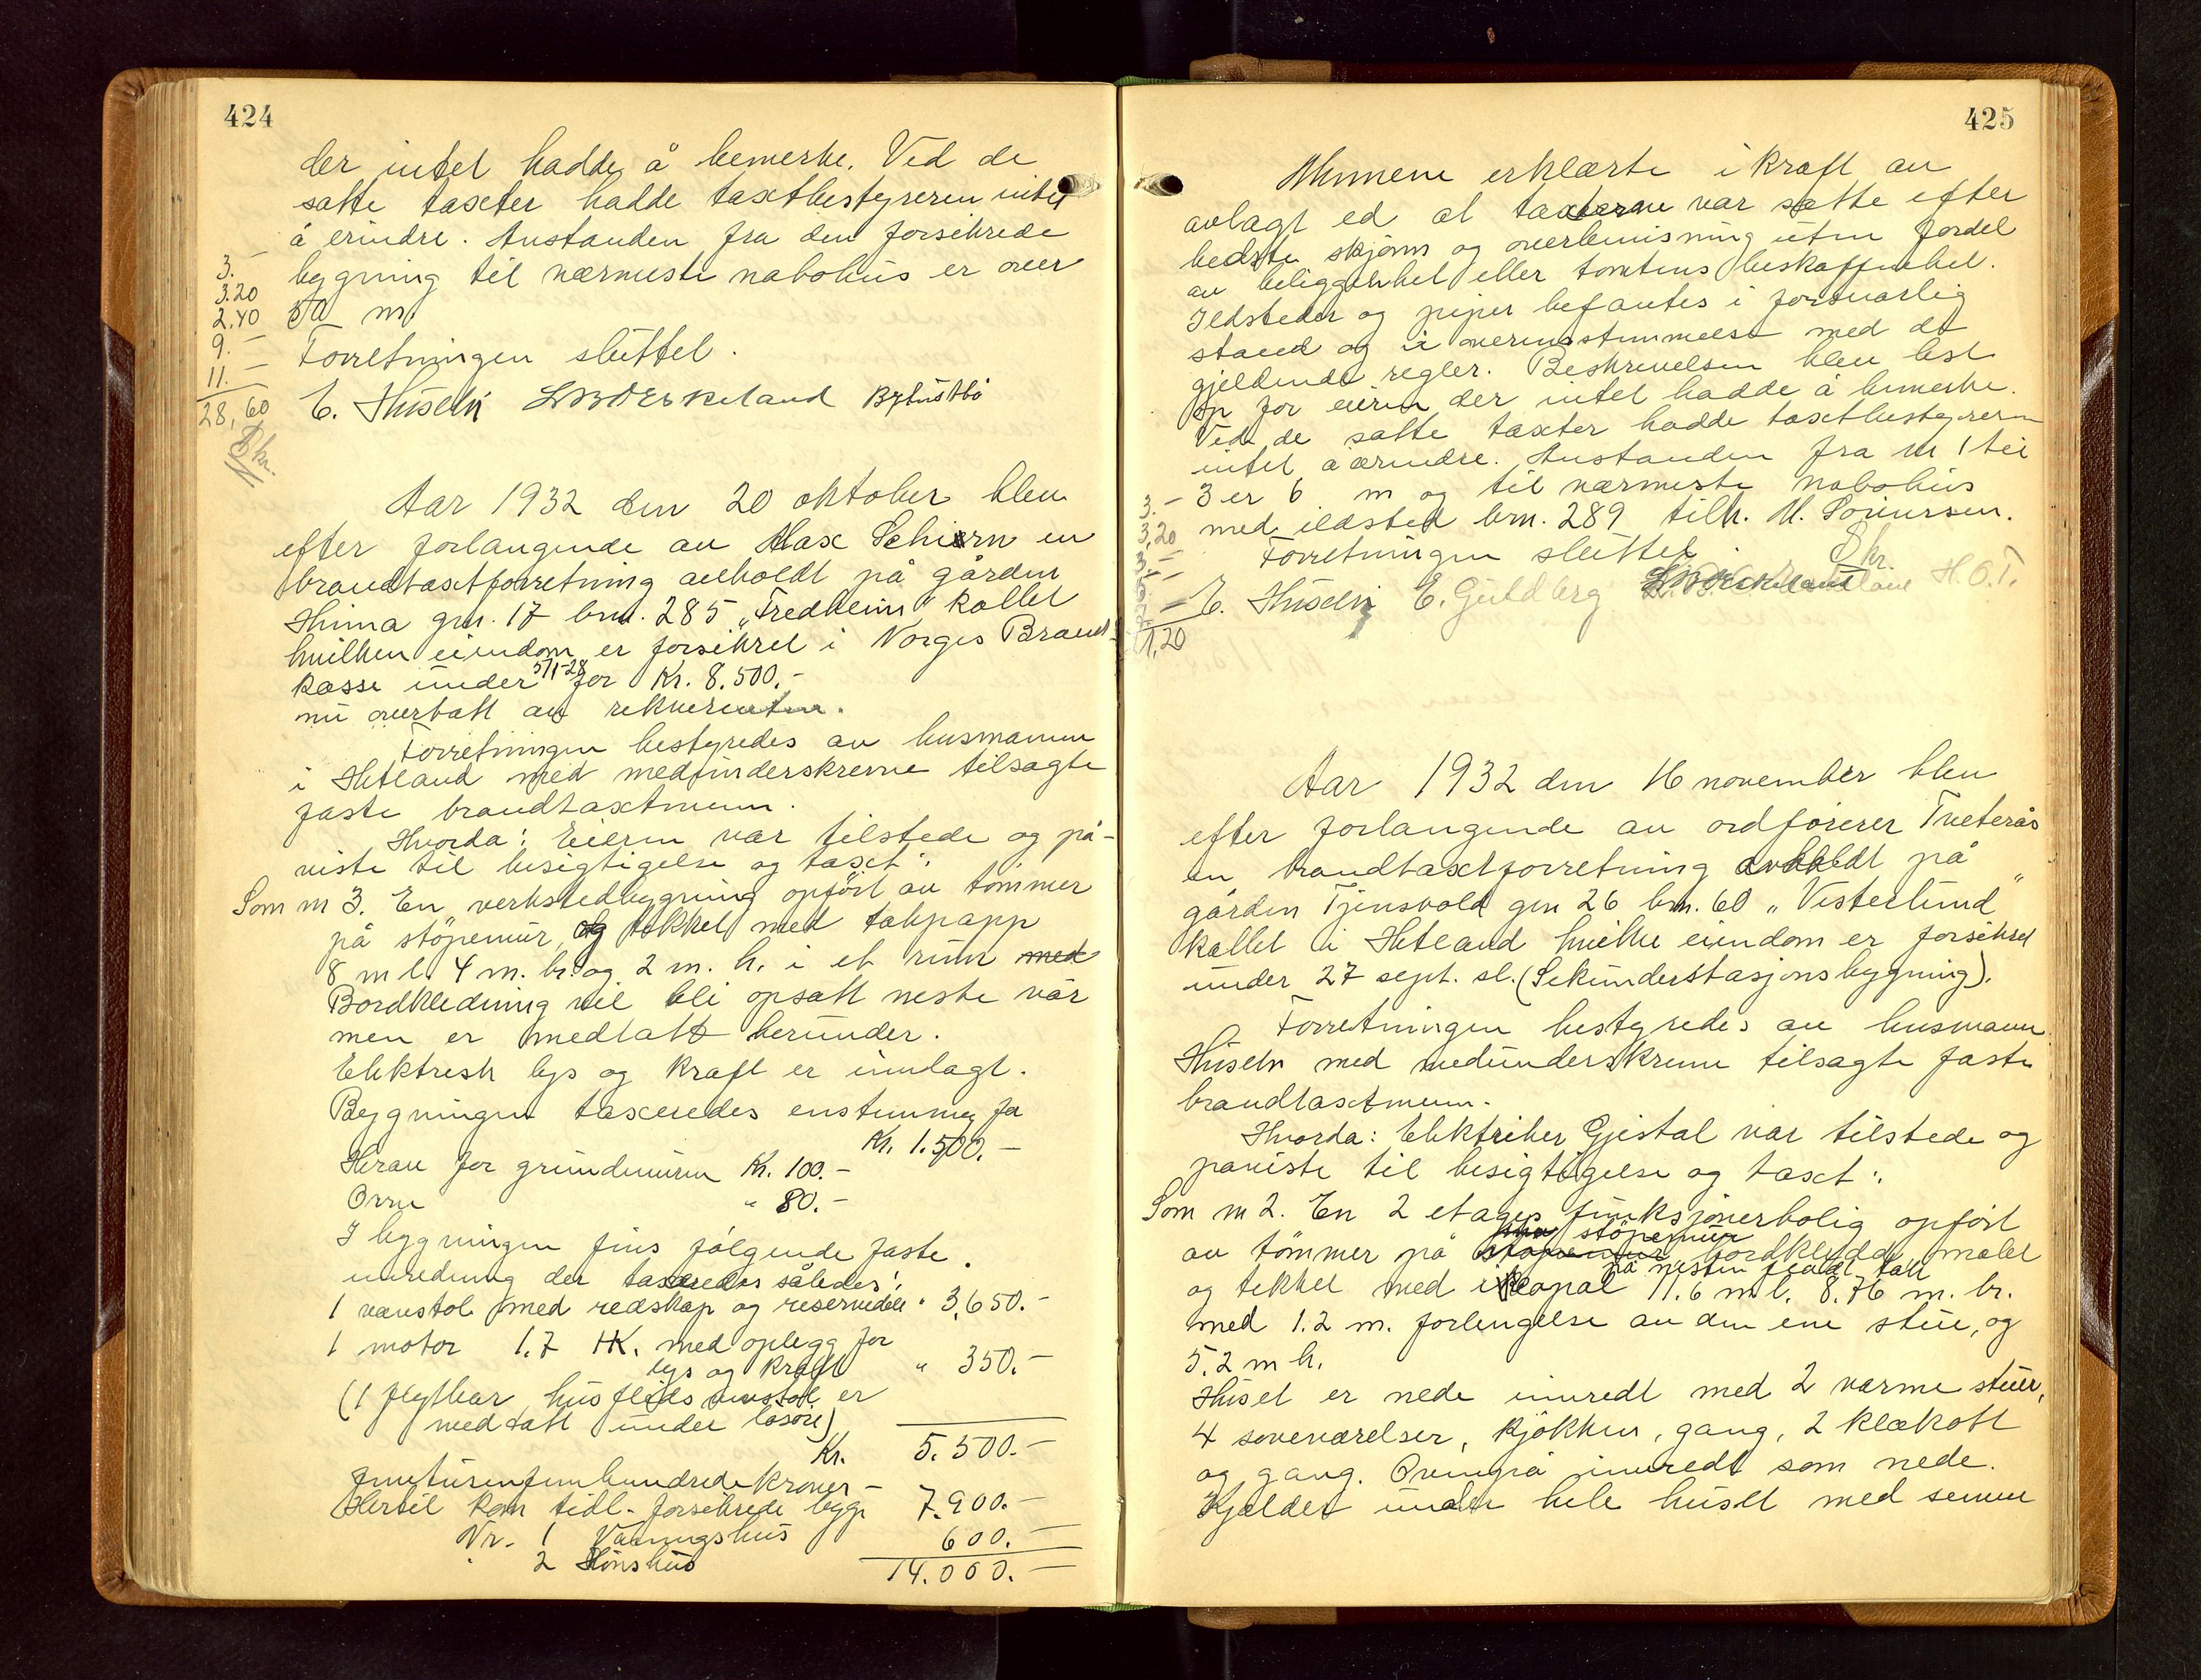 424
der intet hadde å bemerke. Ved de
satte taxter hadde taxtbestyreren intet
å erindre. Avstanden fra den forsikrede
bygning til nærmeste nabohus er over
50 m.
Forretningen sluttet.
E. Huseby Bj Lustbö
3.-
3.20
2.40
9.-
11.-
28,60
Skr.
Aar 1932 den 20 oktober blev
efter forlangende av Max Schiørn en
brandtaxtforretning avholdt på gården
Hinna gnr. 17 bnr. 285 „Fredheim" kallet
hvilken eiendom er forsikret i Norges Brand-
kasse under 5/1-28 for Kr. 8.500.-
nu overtatt av rekvirenten.
Forretningen bestyredes av husmannen
i Hetland med medunderskrevne tilsagte
faste brandtaxtmenn.
Hvorda: Eieren var tilstede og på-
viste til besigtigelse og taxt:
Som nr 3. En verkstedbygning opført av tømmer
på støpemur, og tekket med takpapp
8 m l. 4 m. br. og 2 m. h. i et rum med
Bordkledning vil bli opsatt neste vår
men er medtatt herunder.
Elektrisk lys og kraft er innlagt.
Bygningen taxeredes enstemmig for
Kr. 1.500.-
Herav for grundmuren Kr. 100.-
Ovn " 80.-
I bygningen fins følgende faste
innredning der taxeredes således:
1 vevstol med redskap og reservedele " 3.650.-
1 motor 1.7 HK. med oplegg for
lys og kraft " 350.-
(1 flytbar husflids vevstol er
medtatt under løsøre)
Kr. 5.500.-
femtusenfemhundredekroner-
Hertil kom tidl. forsikrede bygn.
Nr. 1 Våningshus 7.900.-
" 2 Hønshus 600.-
14.000.-
425
Mennene erklærte i kraft av
avlagt ed at taxterne var satte efter
bedste skjønn og overbevisning uten fordel
av beliggenhet eller tomtens beskaffenhet.
Ildsteder og piper befantes i forsvarlig
stand og i overensstemmelse med de
gjeldende regler. Beskrivelsen blev lest
op for eieren der intet hadde å bemerke.
Ved de satte taxter hadde taxtbestyreren
intet å ærindre. Avstanden fra nr 1 til
3 er 6 m og til nærmeste nabohus
med ildsted bnr. 289 tilh. M. Sørensen.
Forretningen sluttet.
Skr.
E. Huseby E. Guldberg H.O.T.
3.-
3,20
3.-
1,20
Aar 1932 den 16 november blev
efter forlangende av ordfører Tveterås
en brandtaxtforretning avholdt på
gården Tjensvold gnr 26 bnr. 60 „Vesterlund"
kallet i Hetland hvilke eiendom er forsikret
under 27 sept. sl. (Sekunderstasjonsbygning).
Forretningen bestyredes av husmann
Huseby med medunderskrevne tilsagte faste
brandtaxtmenn.
Hvorda: Elektriker Gjestal var tilstede og
påviste til besigtigelse og taxt:
Som nr 2. En 2 etages funksjonerbolig opført
støpemur
av tømmer på støpemur bordkledd, malet
på nesten fladt tak
og tekket med 11.6 m l. 8.76 m. br.
med 1.2 m. forlengelse av den ene stue, og
5.2 m h.
Huset er nede innredt med 2 varme stuer,
4 soveværelser, kjøkken, gang, 2 klækott
og gang. Ovenpå innredt som nede.
Kjelder under hele huset med sement